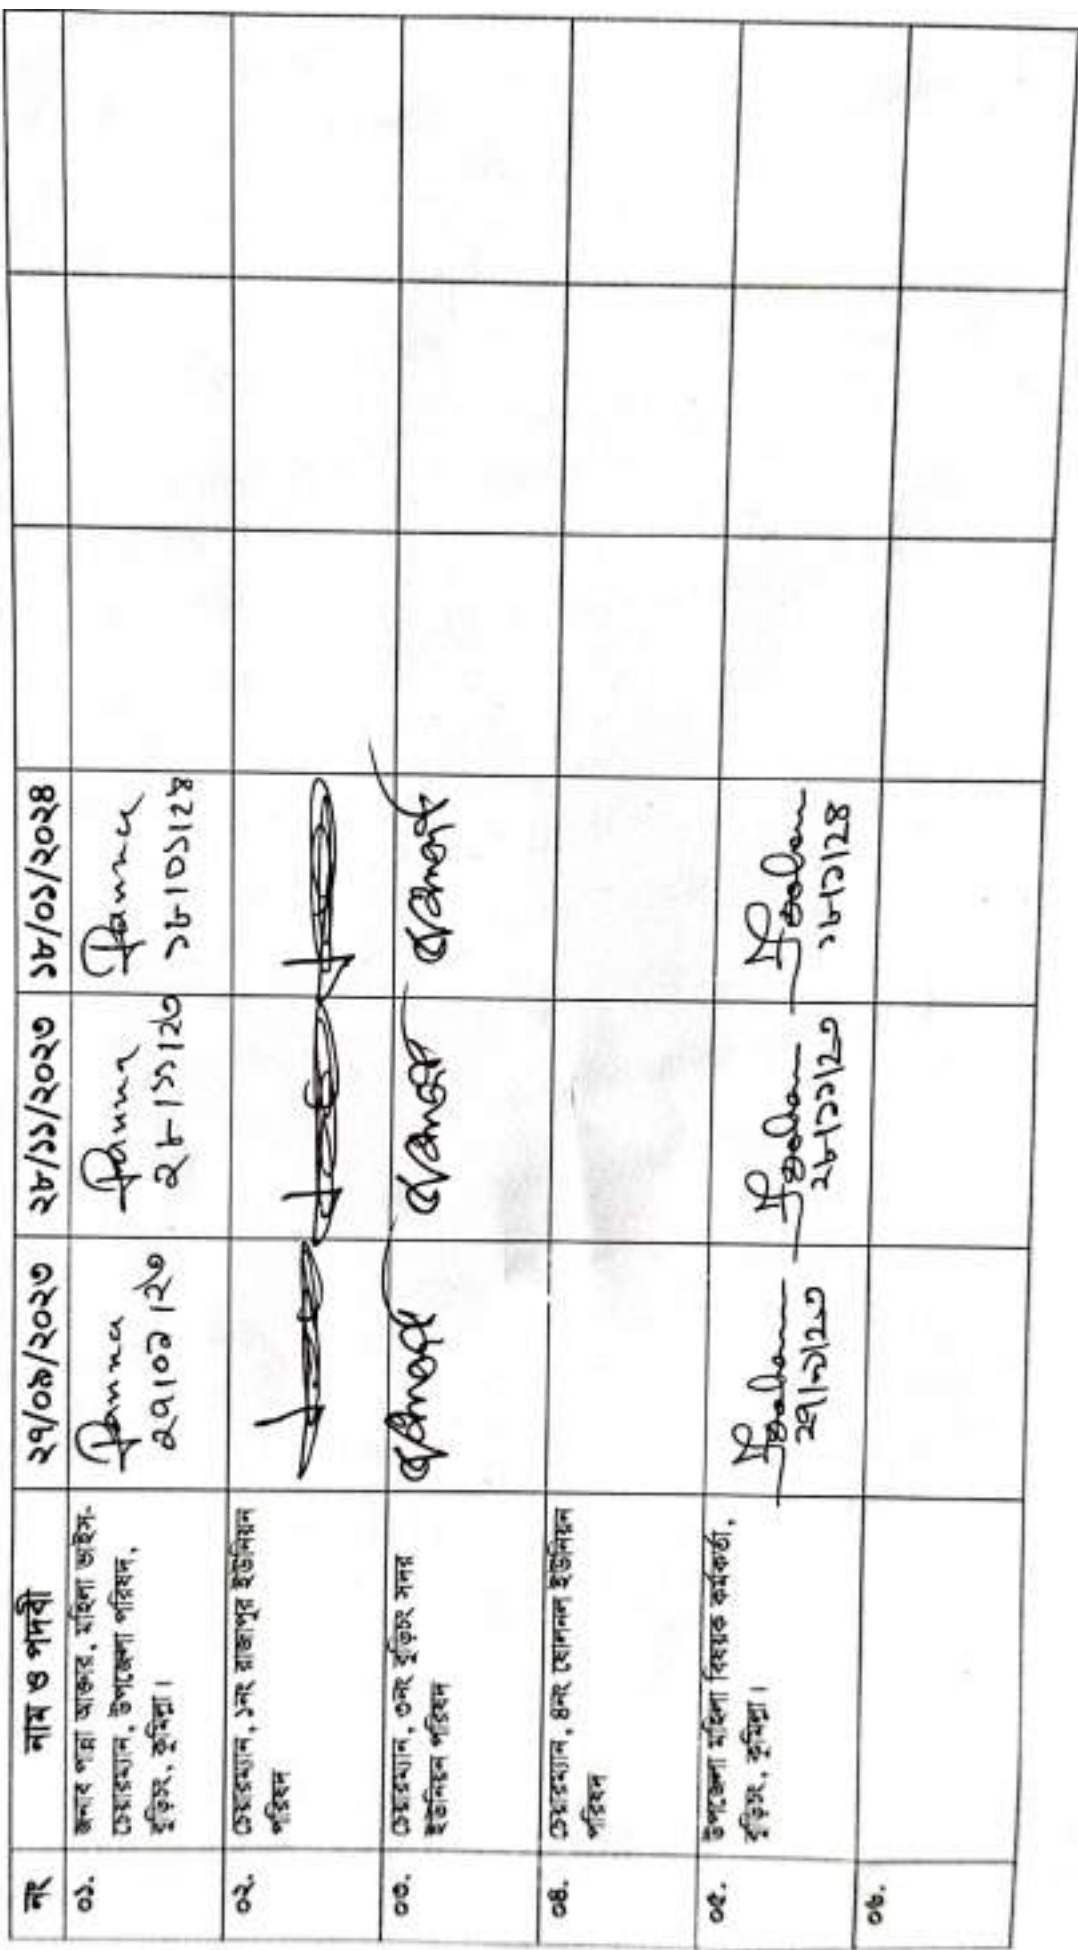 নং নাম ও পদবী ২৭/০৯/২০২৩ ২৮/১১/২০২৩ ১৮/০১/২০২৪
০১. জনাব পান্না আক্তার, মহিলা ভাইস-
চেয়ারম্যান, উপজেলা পরিষদ,
বুড়িচং, কুমিল্লা।
Panna
২৭।০৯।২৩
Panna
২৮।১১।২৩
Panna
১৮।০১।২৪
০২. চেয়ারম্যান, ১নং রাজাপুর ইউনিয়ন
পরিষদ
০৩. চেয়ারম্যান, ৩নং বুড়িচং সদর
ইউনিয়ন পরিষদ
০৪. চেয়ারম্যান, ৪নং ষোলনল ইউনিয়ন
পরিষদ
০৫. উপজেলা মহিলা বিষয়ক কর্মকর্তা,
বুড়িচং, কুমিল্লা।
২৭।৯।২৩
২৮।১১।২৩
১৮।১।২৪
০৬.